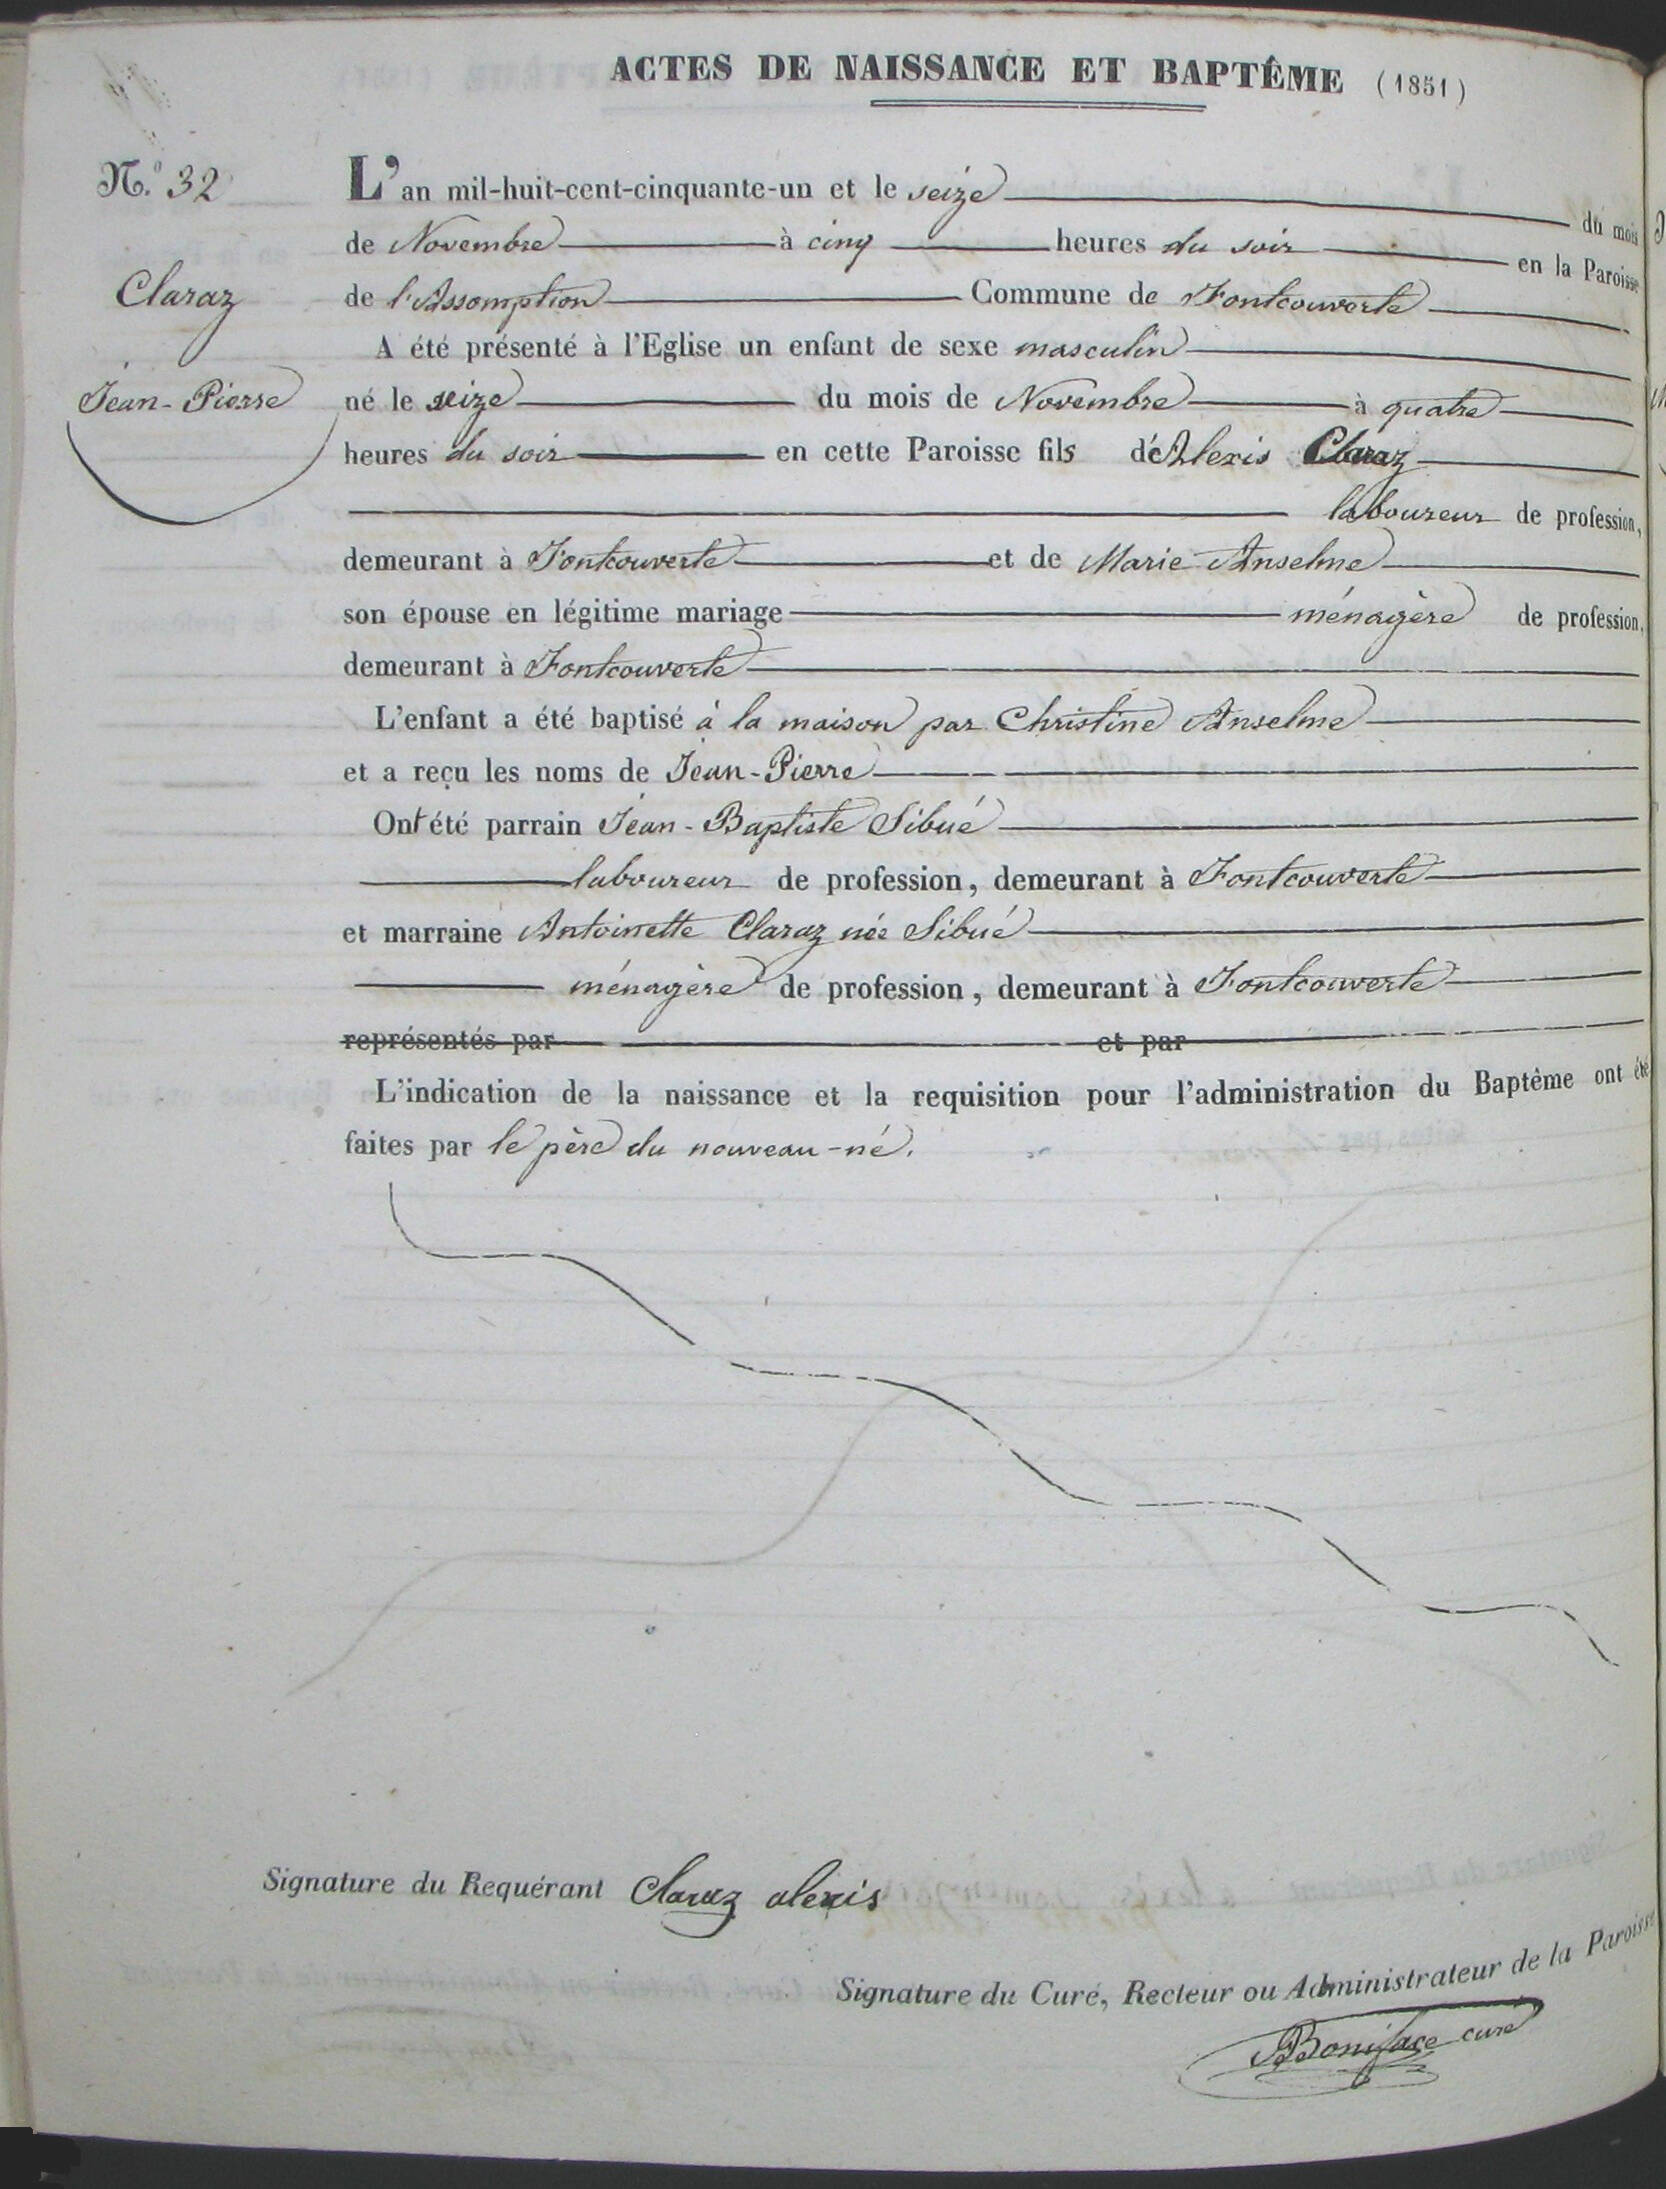 ACTES DE NAISSANCE ET BAPTÊME (1851)
N.º 32
L'an mil-huit-cent-cinquante-un et le seize du mois
de Novembre à cinq heures du soir en la Paroisse
Claraz
de l'Assomption Commune de Fontcouverte
A été présenté à l'Eglise un enfant de sexe masculin
Jean-Pierre
né le seize du mois de Novembre à quatre
heures du soir en cette Paroisse fils d'Alexis Claraz
laboureur de profession,
demeurant à Fontcouverte et de Marie Anselme
son épouse en légitime mariage ménagère de profession,
demeurant à Fontcouverte
L'enfant a été baptisé à la maison par Christine Anselme
et a reçu les noms de Jean-Pierre
Ont été parrain Jean-Baptiste Sibué
laboureur de profession, demeurant à Fontcouverte
et marraine Antoinette Claraz née Sibué
ménagère de profession, demeurant à Fontcouverte
représentés par et par
L'indication de la naissance et la requisition pour l'administration du Baptême ont été
faites par le père du nouveau-né.
Signature du Requérant Claraz alexis
Signature du Curé, Recteur ou Administrateur de la Paroisse
Boniface curé